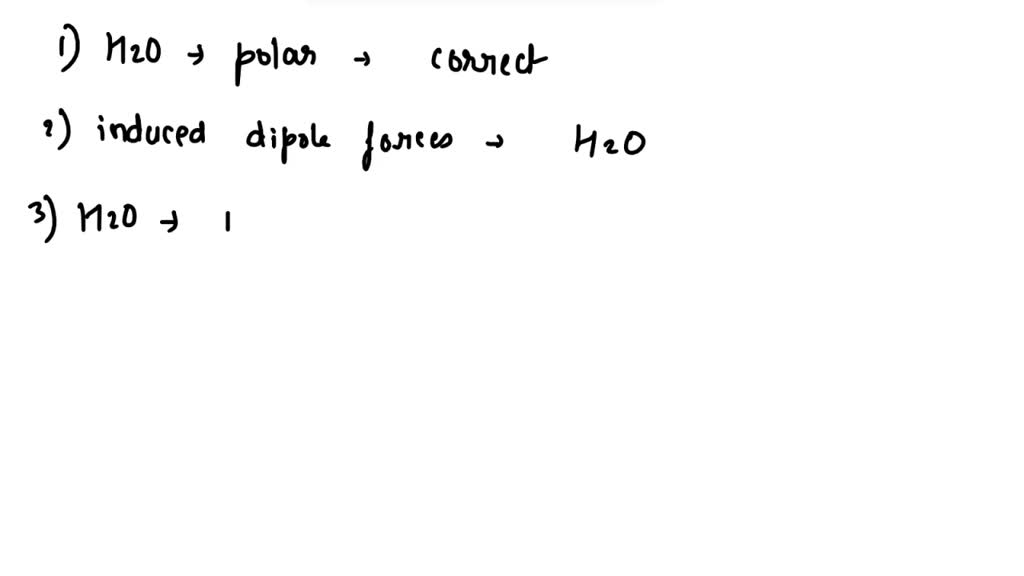 1) H2O → polar → correct
2) induced dipole forces → H2O
3) H2O → 1